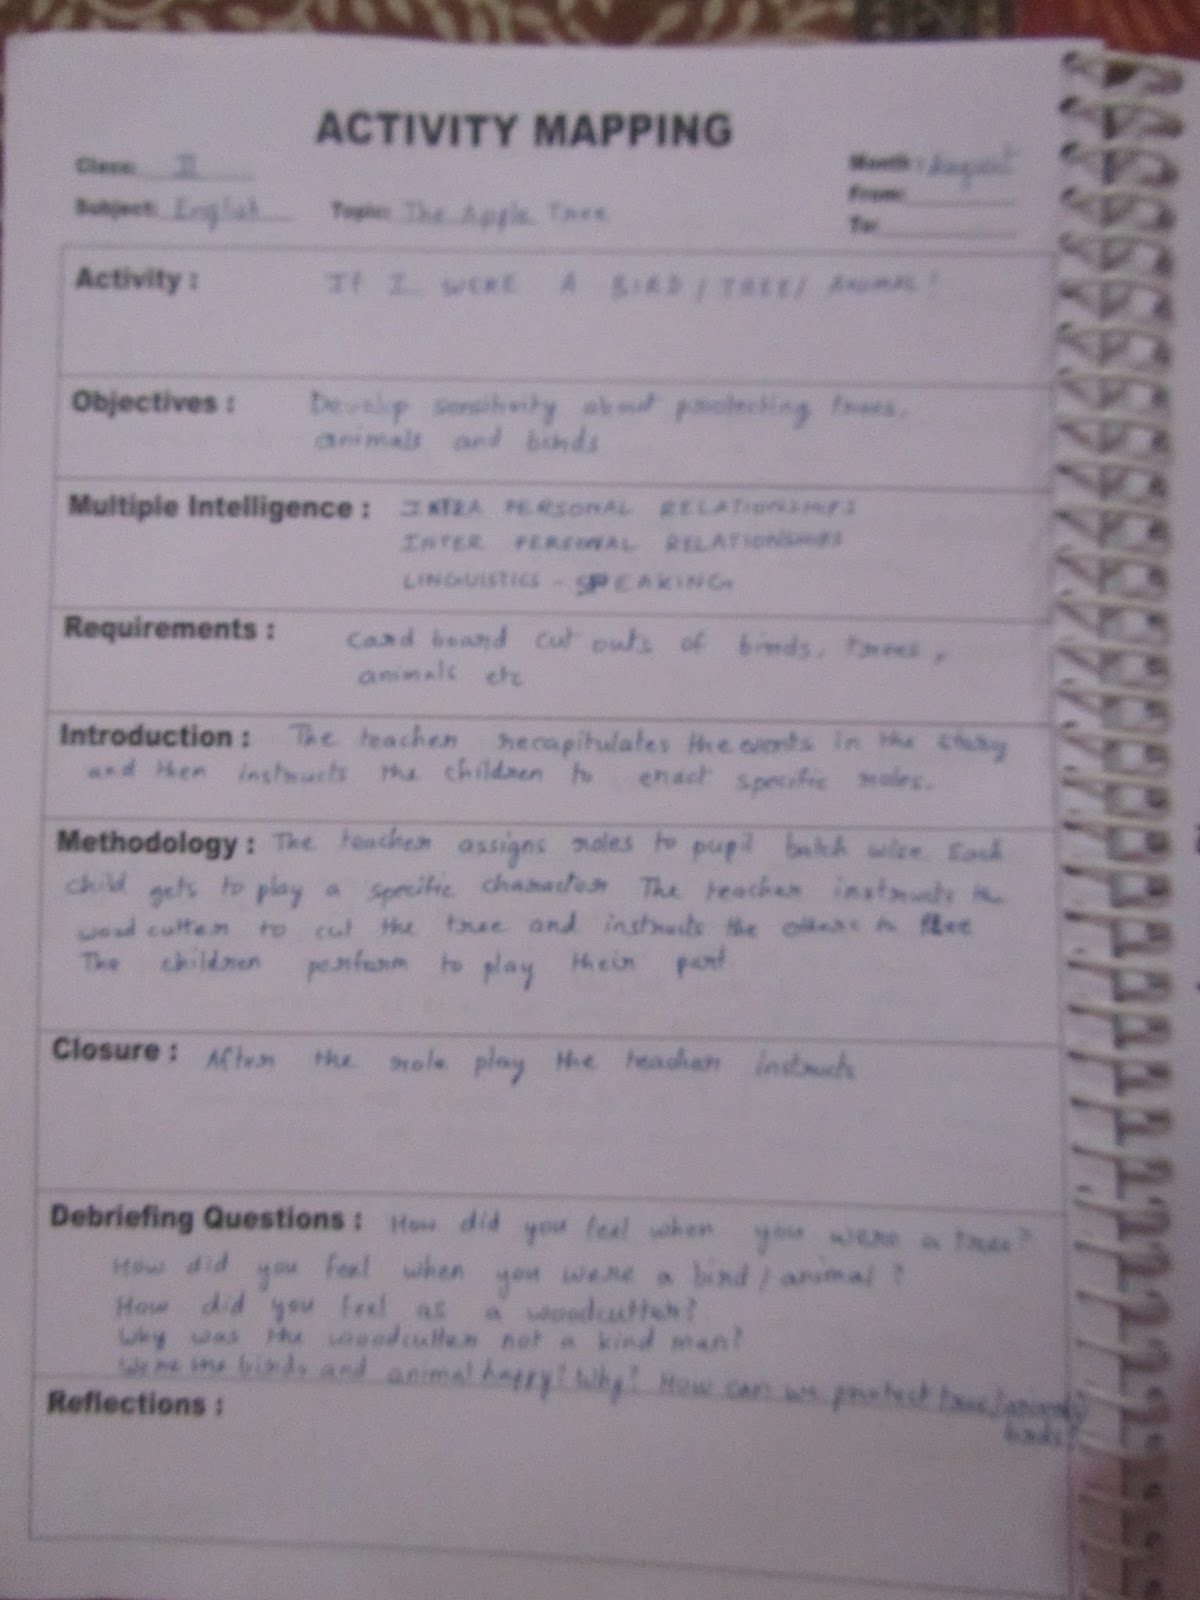 ACTIVITY MAPPING
Class: II
Month: August
From:
Subject: English Topic: The Apple Tree
To:
Activity : If I WERE A BIRD / TREE / ANIMAL!
Objectives : Develop sensitivity about protecting trees,
animals and birds
Multiple Intelligence : INTRA PERSONAL RELATIONSHIPS
INTER PERSONAL RELATIONSHIPS
LINGUISTICS - SPEAKING
Requirements : Card board cut outs of birds, trees,
animals etc
Introduction : The teacher recapitulates the events in the story
and then instructs the children to enact specific roles.
Methodology : The teacher assigns roles to pupil batch wise. Each
child gets to play a specific character. The teacher instructs the
woodcutter to cut the tree and instructs the others to flee
The children perform to play their part
Closure : After the role play the teacher instructs
Debriefing Questions : How did you feel when you were a tree?
How did you feel when you were a bird / animal ?
How did you feel as a woodcutter?
Why was the woodcutter not a kind man?
Were the birds and animal happy? Why? How can we protect tree/animal/
birds?
Reflections :